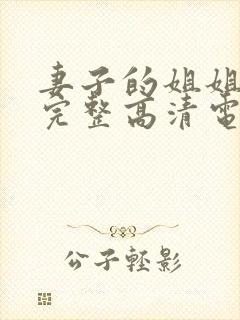 妻子的姐姐
完整高清電
公子輕影